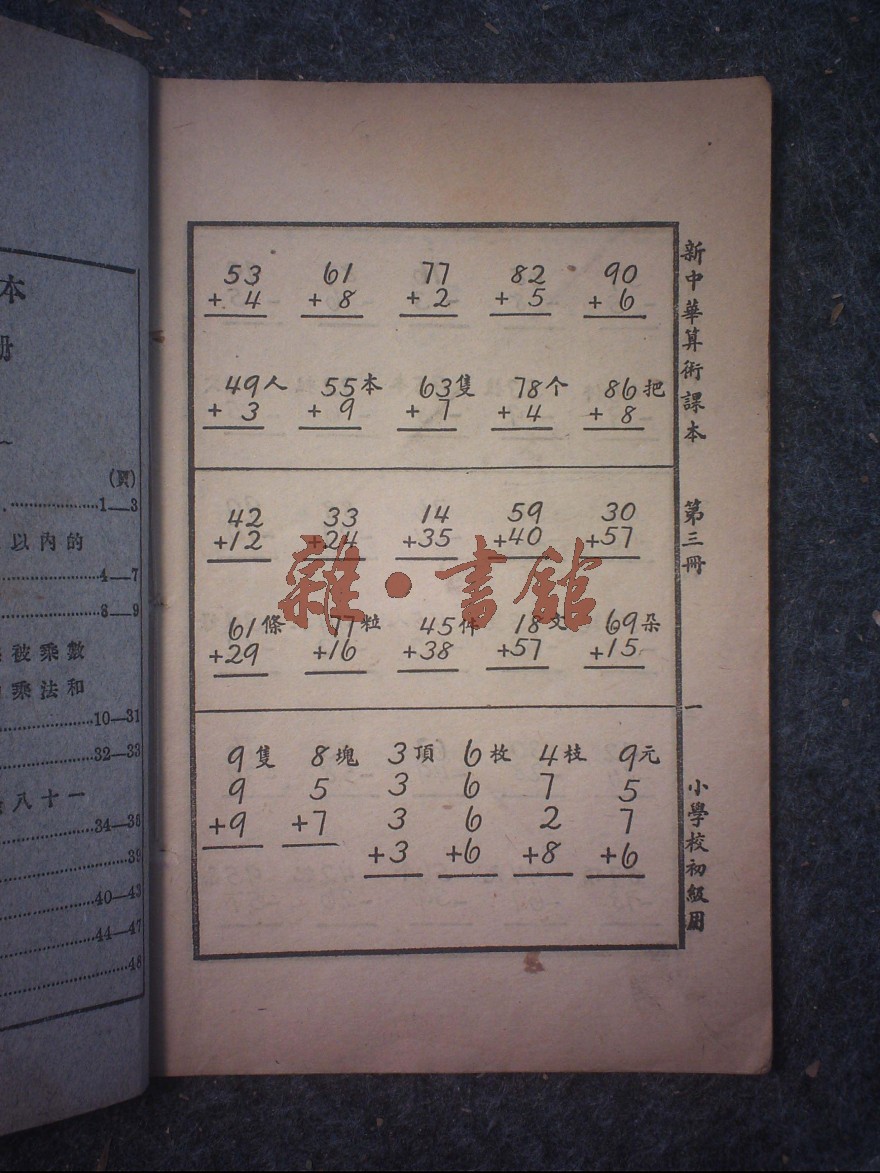 本
冊
(頁)
1—3
以內的
4—7
8—9
被乘數
乘法和
10—31
32—33
八十一
34—38
39
40—43
44—47
48
53 61 77 82 90
+ 4 + 8 + 2 + 5 + 6
49人 55本 63隻 78个 86把
+ 3 + 9 + 7 + 4 + 8
42 33 14 59 30
+12 +24 +35 +40 +57
61條 77粒 45件 18文 69朵
+29 +16 +38 +57 +15
9隻 8塊 3頂 6枚 4枝 9元
9 5 3 6 7 5
+9 +7 3 6 2 7
+3 +6 +8 +6
新中華算術課本 第三冊 一 小學校初級用
雜·書館